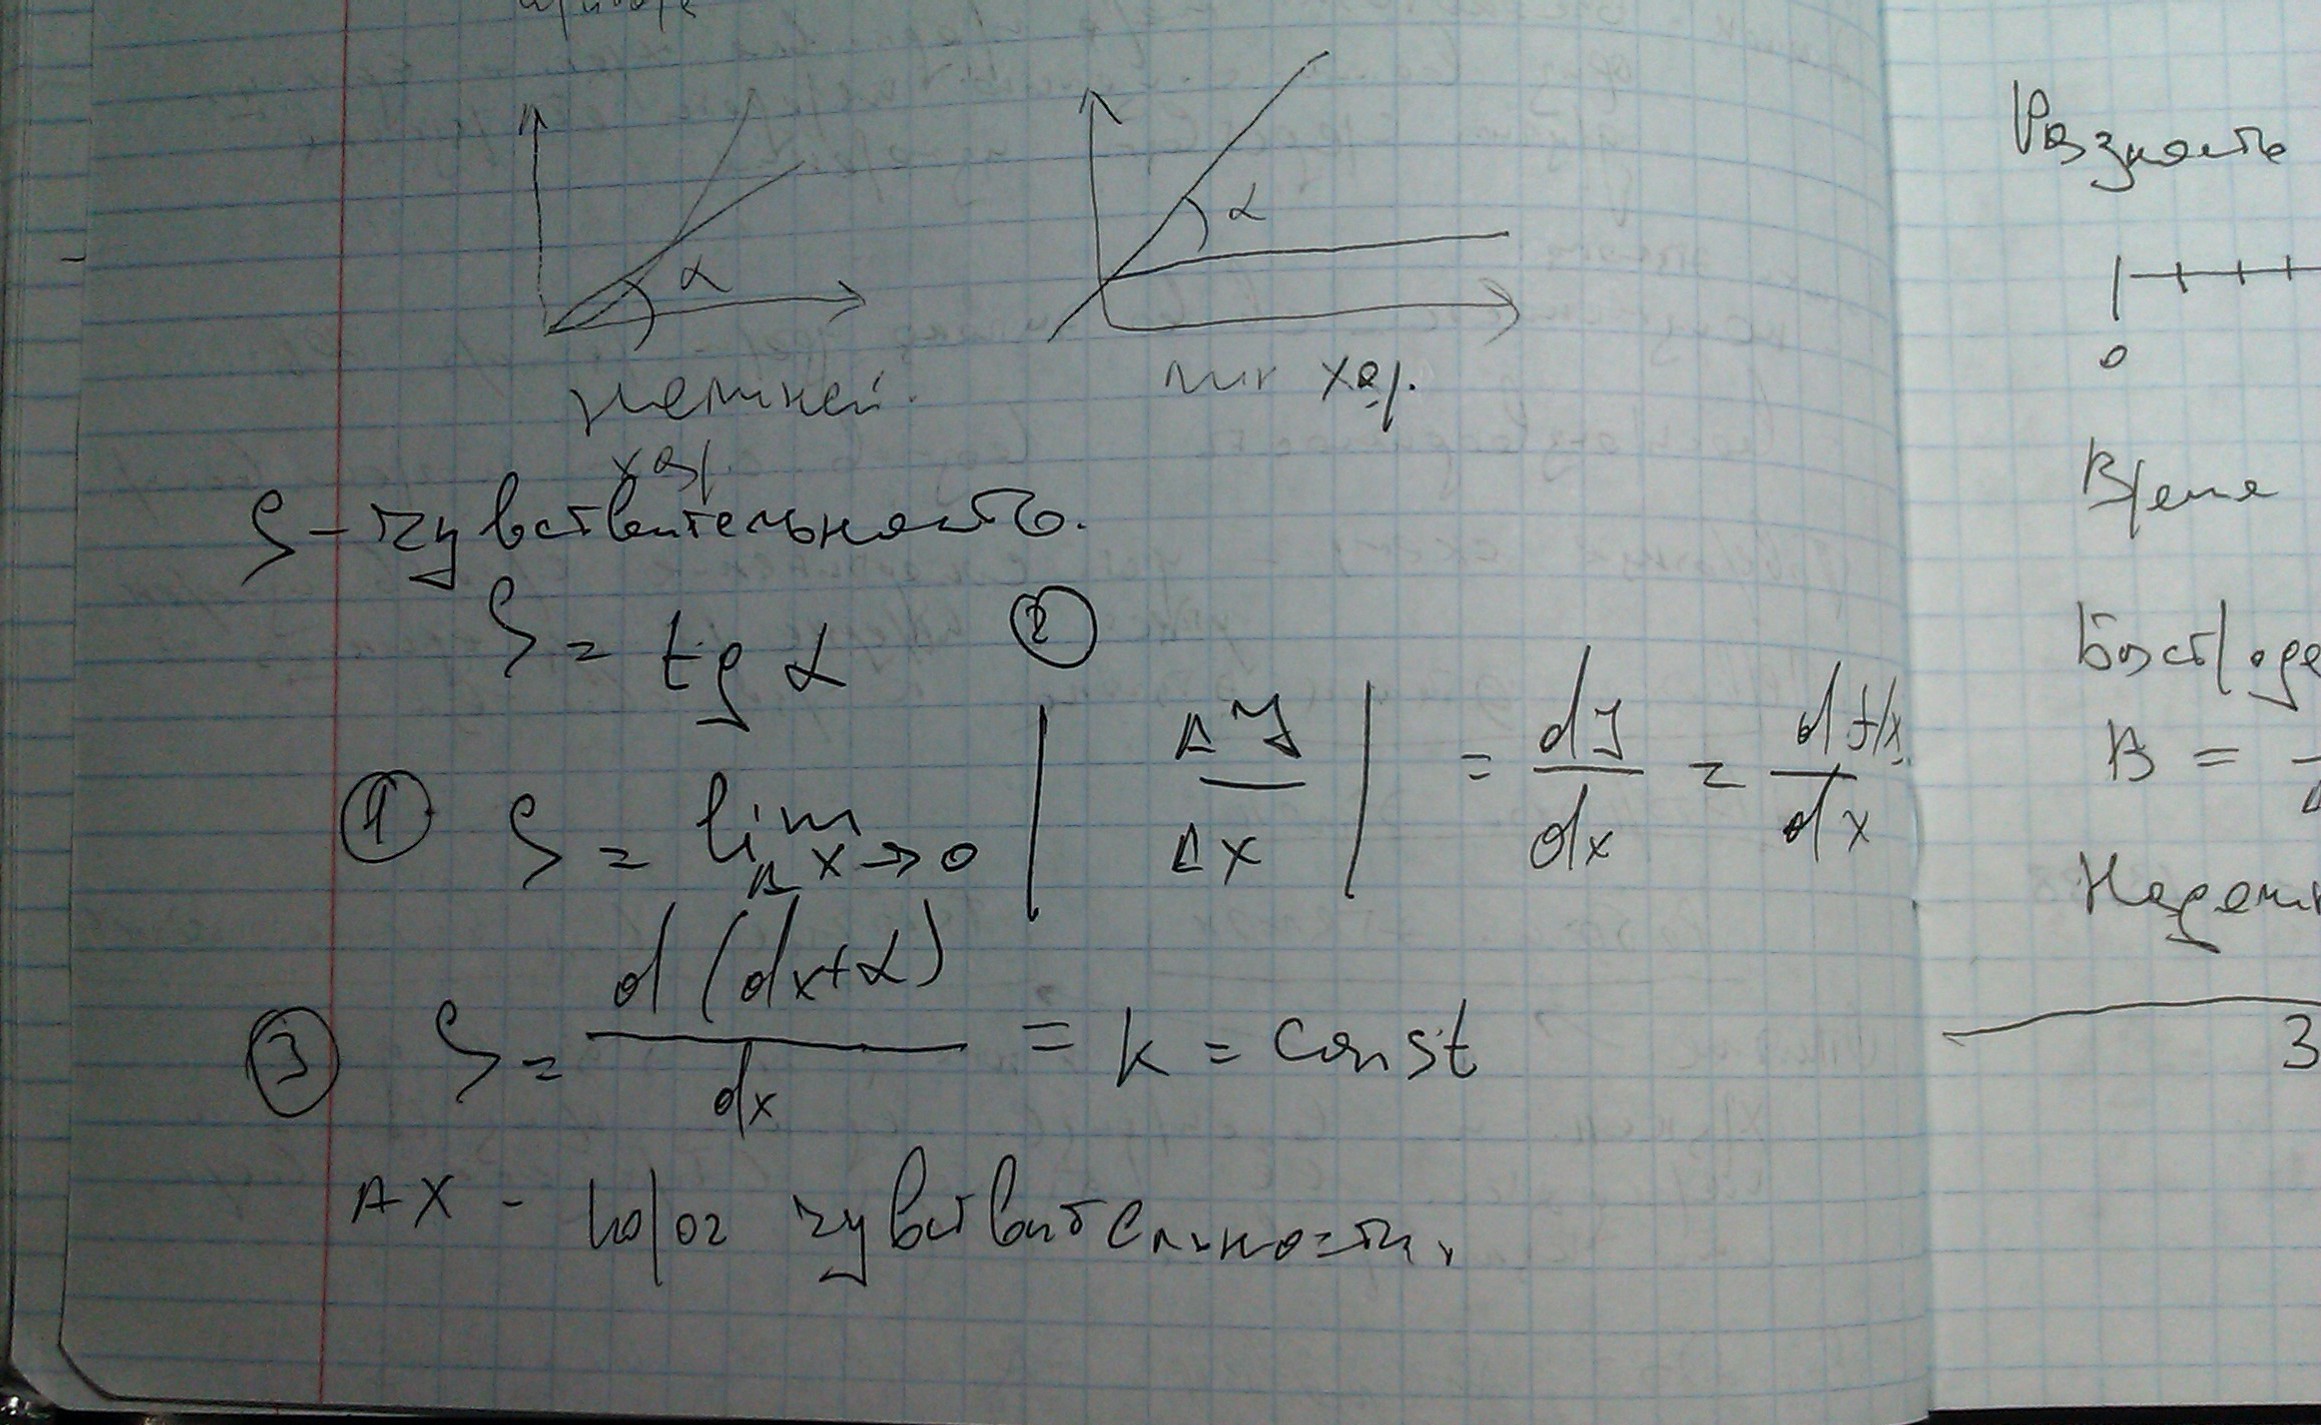 α
α
нелиней.
хар.
лин хар.
S - чувствительность.
S = tg α ②
① S = lim Δx→0 | Δy / Δx | = dy / dx = d f(x) / dx
③ S = d (dx+α) / dx = k = const
Δx - порог чувствительности.
Разность
0
Време
Быстроде
B =
Надежн
3